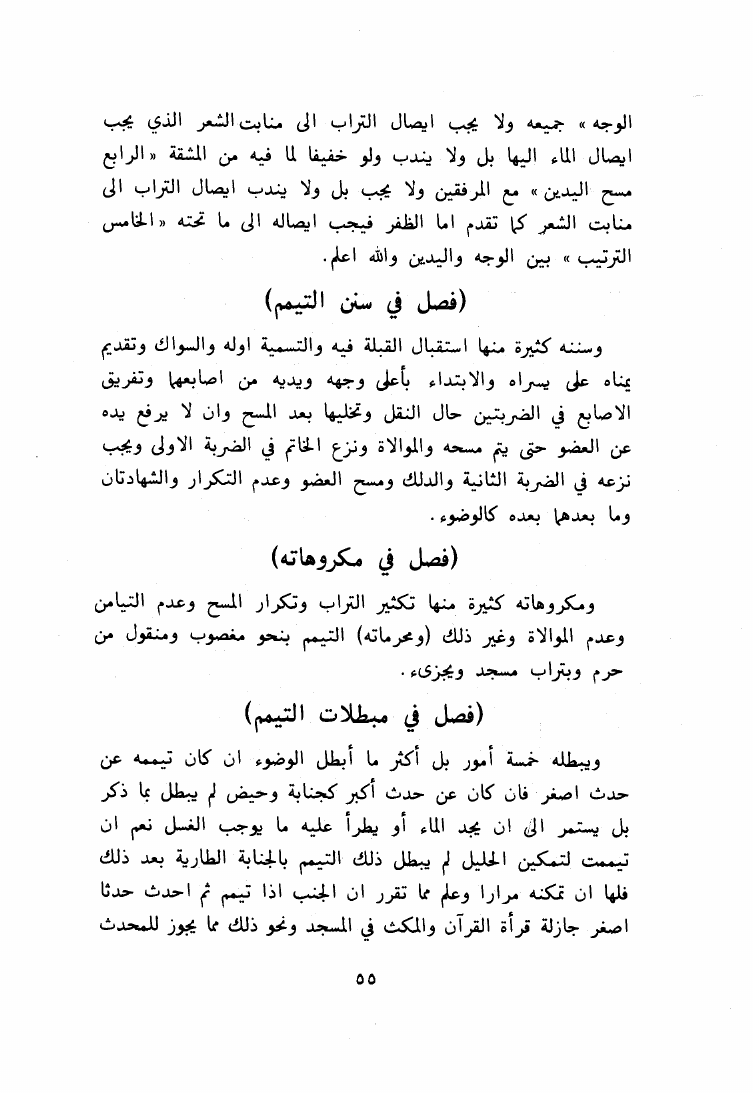 الوجه» جميعه ولا يجب ايصال التراب الى منابت الشعر الذي يجب
ايصال الماء اليها بل ولا يندب ولو خفيفا لما فيه من المشقة «الرابع
مسح اليدين» مع المرفقين ولا يجب بل ولا يندب ايصال التراب الى
منابت الشعر كما تقدم اما الظفر فيجب ايصاله الى ما تحته «الخامس
الترتيب» بين الوجه واليدين والله اعلم.
(فصل في سنن التيمم)
وسننه كثيرة منها استقبال القبلة فيه والتسمية اوله والسواك وتقديم
يمناه على يسراه والابتداء بأعلى وجهه ويديه من اصابعهما وتفريق
الاصابع في الضربتين حال النقل وتخليها بعد المسح وان لا يرفع يده
عن العضو حتى يتم مسحه والموالاة ونزع الخاتم في الضربة الاولى ويجب
نزعه في الضربة الثانية والدلك ومسح العضو وعدم التكرار والشهادتان
وما بعدهما بعده كالوضوء.
(فصل في مكروهاته)
ومكروهاته كثيرة منها تكثير التراب وتكرار المسح وعدم التيامن
وعدم الموالاة وغير ذلك (ومحرماته) التيمم بنحو مغصوب ومنقول من
حرم وبتراب مسجد ويجزىء.
(فصل في مبطلات التيمم)
ويبطله خمسة أمور بل أكثر ما أبطل الوضوء ان كان تيممه عن
حدث اصغر فان كان عن حدث أكبر كجنابة وحيض لم يبطل بما ذكر
بل يستمر الى ان يجد الماء أو يطرأ عليه ما يوجب الغسل نعم ان
تيممت لتمكين الحليل لم يبطل ذلك التيمم بالجنابة الطارية بعد ذلك
فلها ان تمكنه مرارا وعلم مما تقرر ان الجنب اذا تيمم ثم احدث حدثا
اصغر جازلة قرأة القرآن والمكث في المسجد ونحو ذلك مما يجوز للمحدث
٥٥